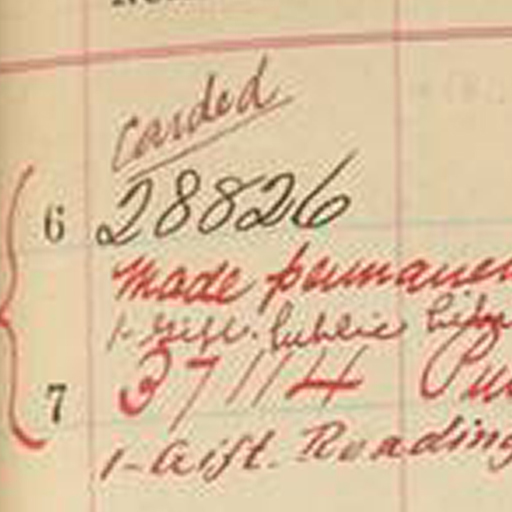 Carded
6 28826
Made permanen
1-Gift. Public Libr
7 37114 Pu
1-Gift. Reading